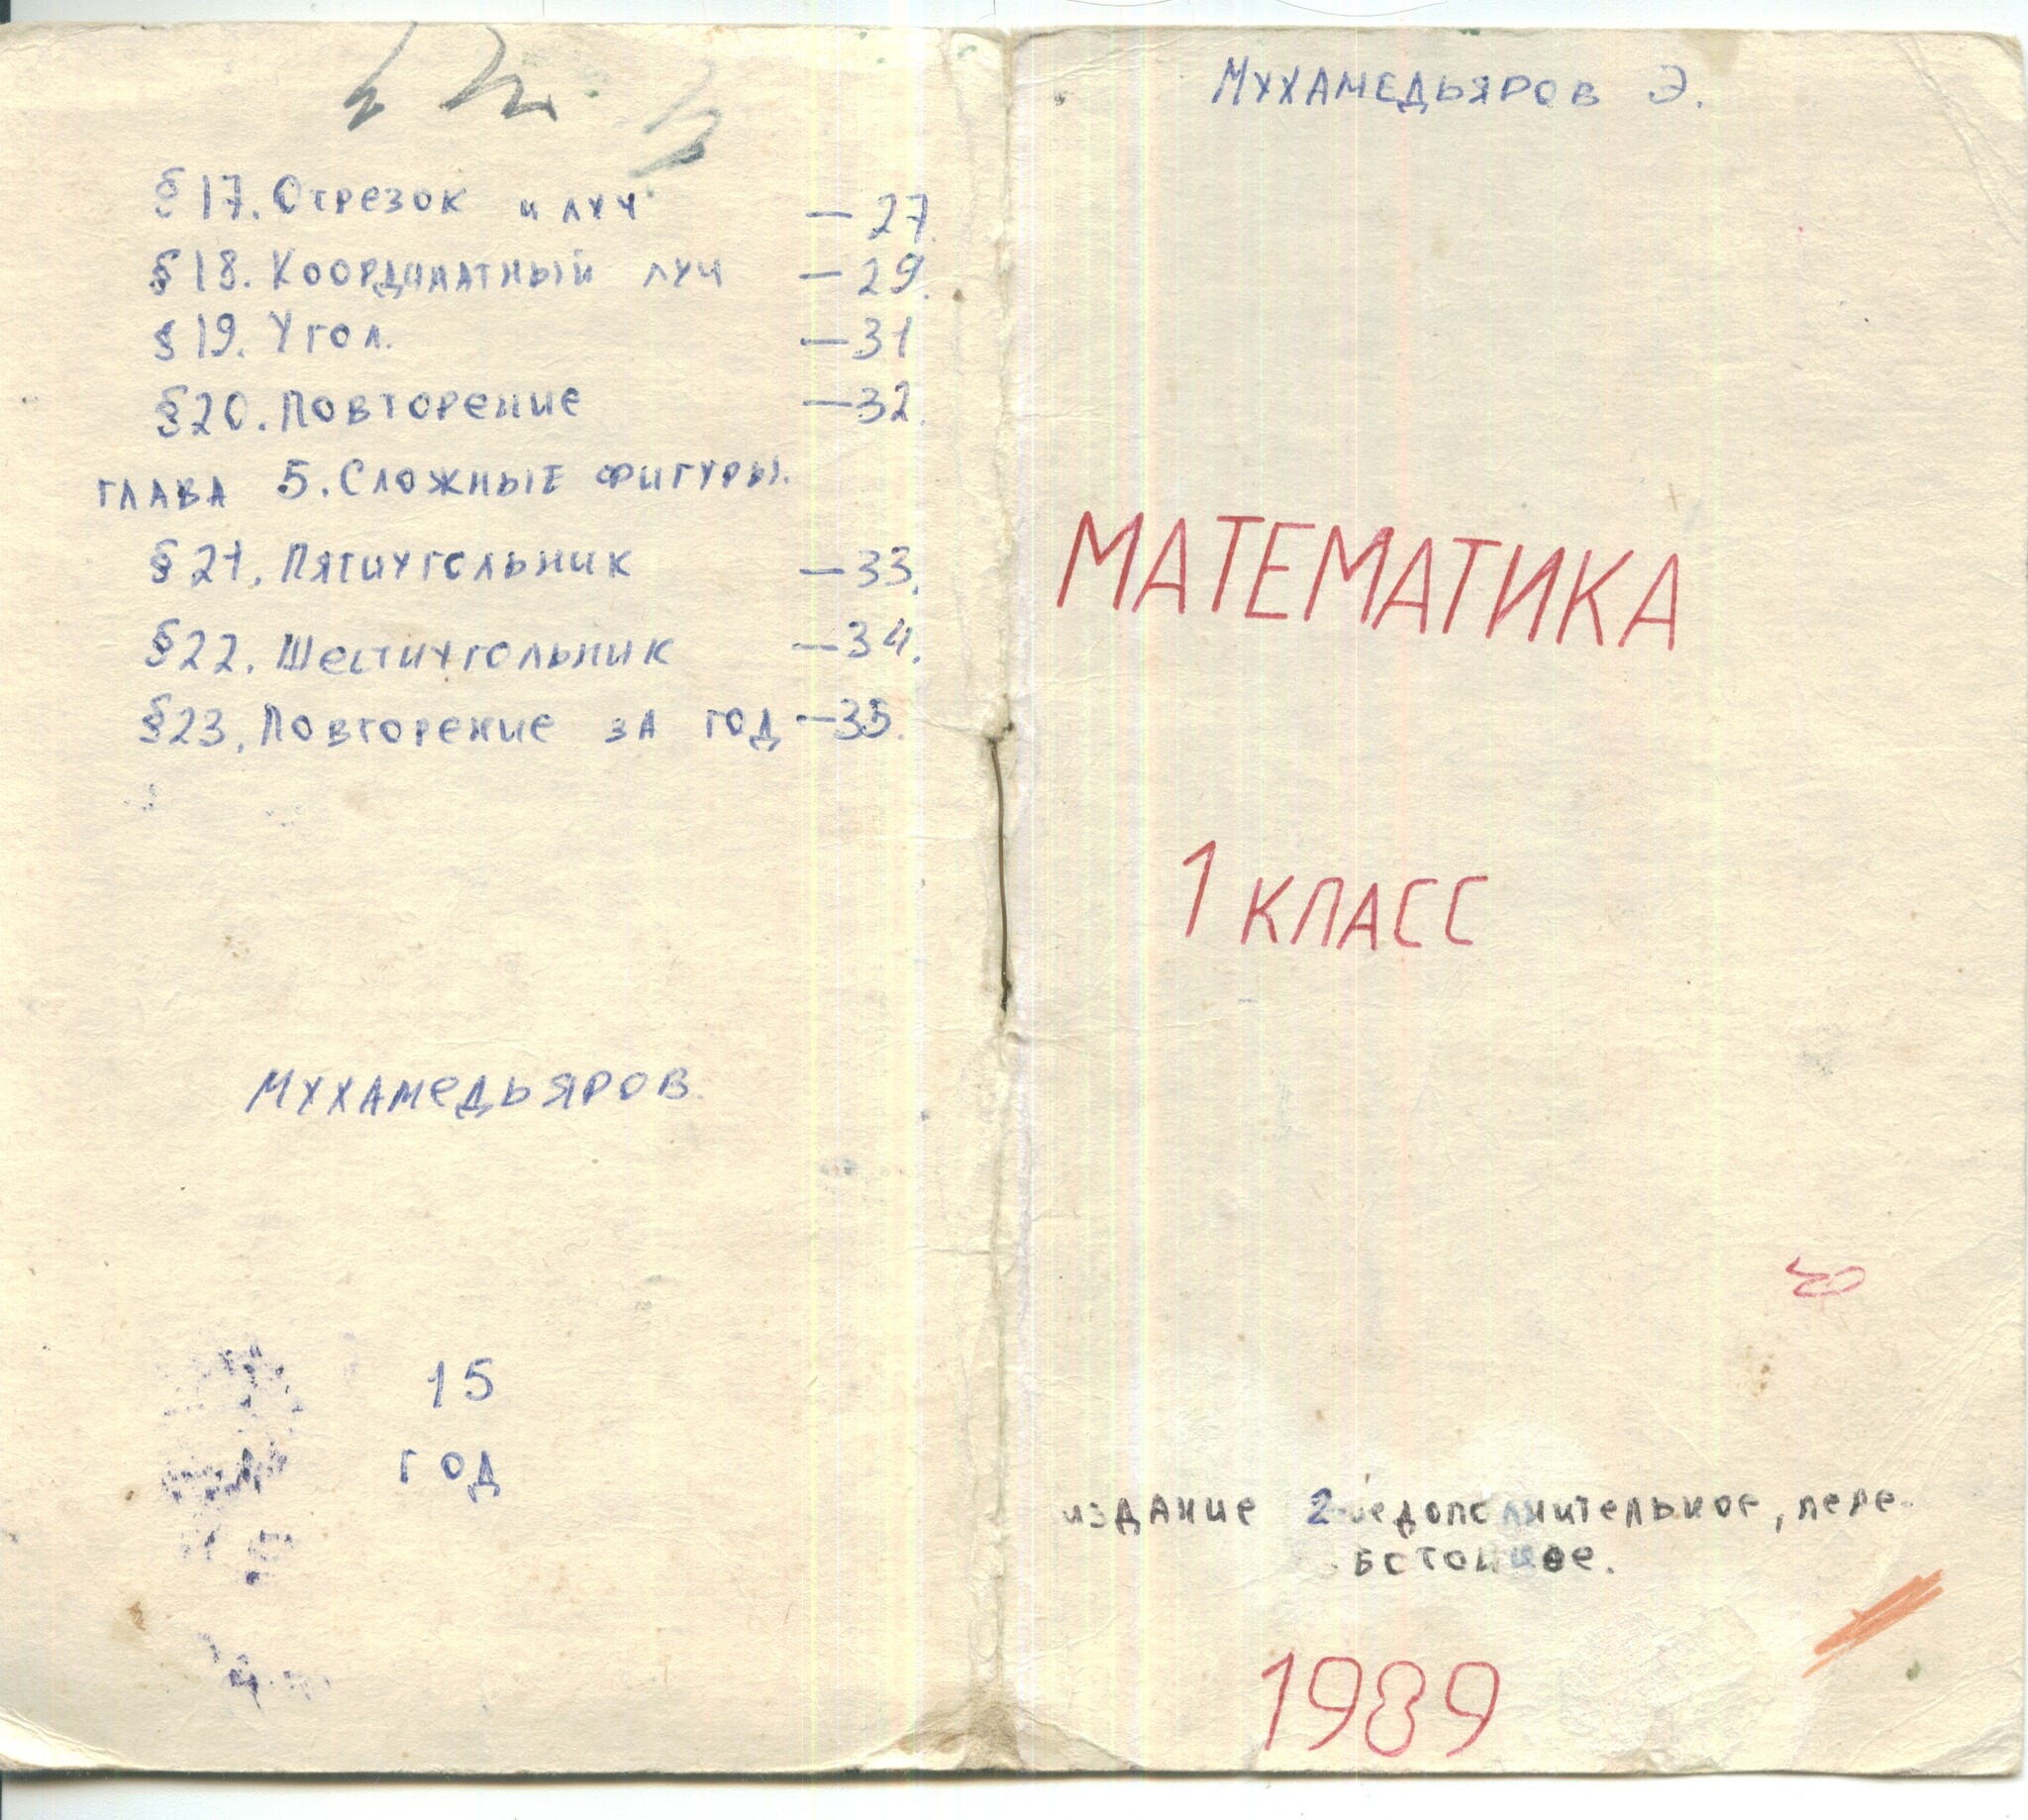 §17. Отрезок и луч —27.
§18. Координатный луч —29.
§19. Угол. —31
§20. Повторение —32.
глава 5. Сложные фигуры.
§21. Пятиугольник —33.
§22. Шестиугольник —34.
§23. Повторение за год —35.
Мухамедьяров.
15
год
Мухамедьяров Э.
МАТЕМАТИКА
1 КЛАСС
издание 2-ое дополнительное, пере-
1989